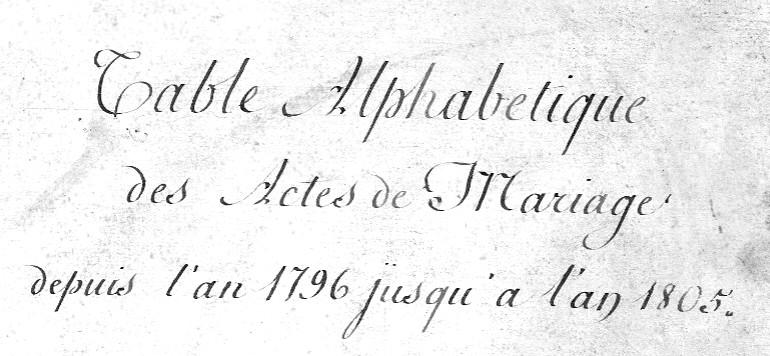 Table Alphabetique
des Actes de Mariage
depuis l'an 1796 jusqu'a l'an 1805.